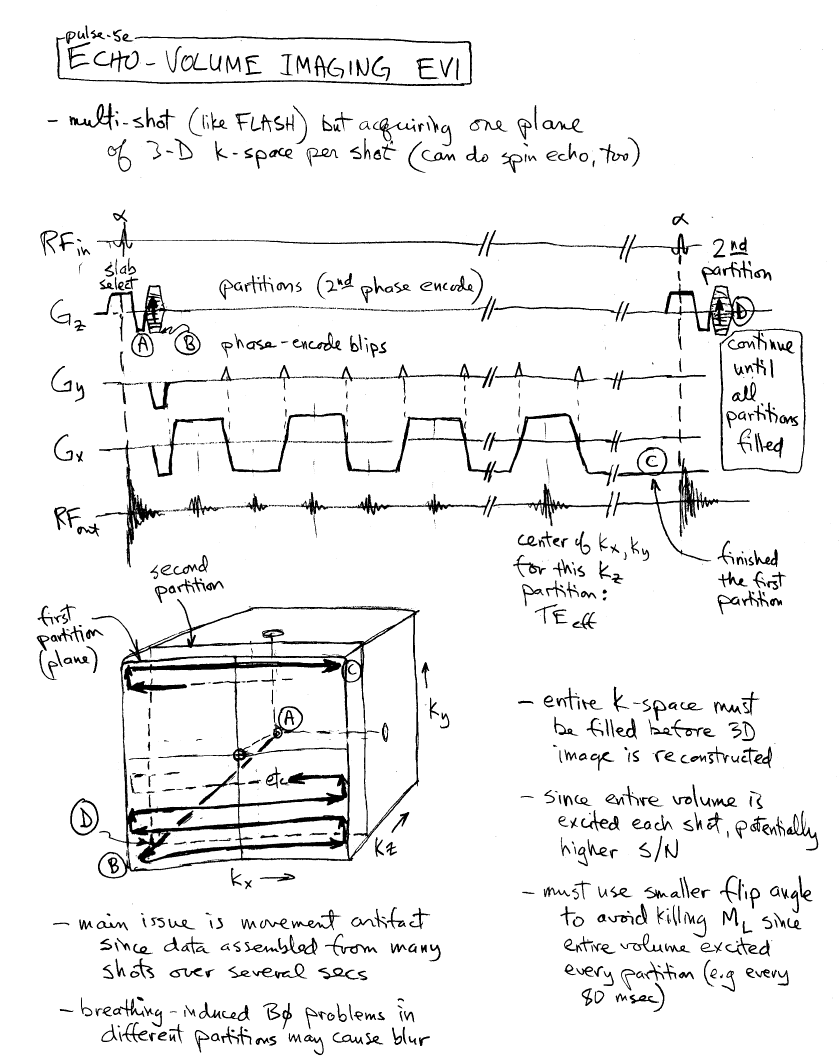 pulse-se
ECHO-VOLUME IMAGING EVI
- multi-shot (like FLASH) but acquiring one plane
of 3-D k-space per shot (can do spin echo, too)
α
α
RF in
2nd
partition
slab
select
partitions (2nd phase encode)
Gz
A
B
D
phase-encode blips
continue
until
all
partitions
filled
Gy
Gx
C
RF out
center of kx, ky
for this kz
partition:
TE eff
finished
the first
partition
second
partition
first
partition
(plane)
C
A
ky
etc
D
B
kz
kx →
- entire k-space must
be filled before 3D
image is reconstructed
- since entire volume is
excited each shot, potentially
higher S/N
- must use smaller flip angle
to avoid killing ML since
entire volume excited
every partition (e.g every
80 msec)
- main issue is movement artifact
since data assembled from many
shots over several secs
- breathing-induced Bø problems in
different partitions may cause blur